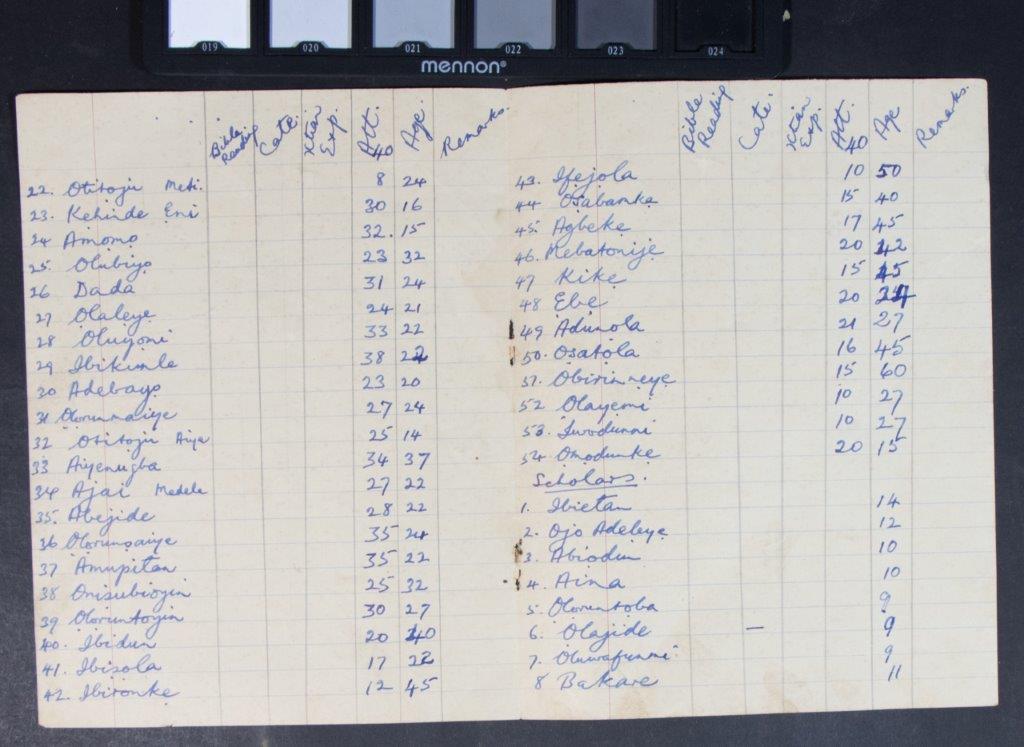 019 020 021 022 023 024
mennon®
Bible Reading Cate. Xtian Exp. Att. 40 Age. Remarks.
22. Otitoju Meti. 8 24
23. Kehinde Eni 30 16
24 Amomo 32. 15
25 Olubiyo 23 32
26 Dada 31 24
27 Olaleye 24 21
28 Oluyomi 33 22
29 Ibikunle 38 22
30 Adebayo 23 20
31 Olorunmaiye 27 24
32 Otitoju Aiya 25 14
33 Aiyenugba 34 37
34 Ajai Medele 27 22
35. Abejide 28 22
36 Olorunsaiye 35 24
37 Amupitan 35 22
38 Orisubioyin 25 32
39 Oloruntoyin 30 27
40. Ibidun 20 40
41. Ibisola 17 22
42. Ibironkẹ 12 45
Bible Reading Cate. Xtian Exp. Att. 40 Age Remarks.
43. Ifejola 10 50
44 Osabamkẹ 15 40
45. Agbekẹ 17 45
46. Mebatonijẹ 20 42
47 Kikẹ 15 45
48 Ebẹ 20 24
49 Adunola 21 27
50. Ọsatọla 16 45
51. Obirinmeyẹ 15 60
52 Olayemi 10 27
53. Iwodunni 10 27
54 Ọmọdunkẹ 20 15
Scholars.
1. Ibietan 14
2. Ojo Adeleyẹ 12
3. Abiodun 10
4. Aina 10
5. Oloruntoba 9
6. Olajide — 9
7. Oluwafunmi 9
8 Bakare 11